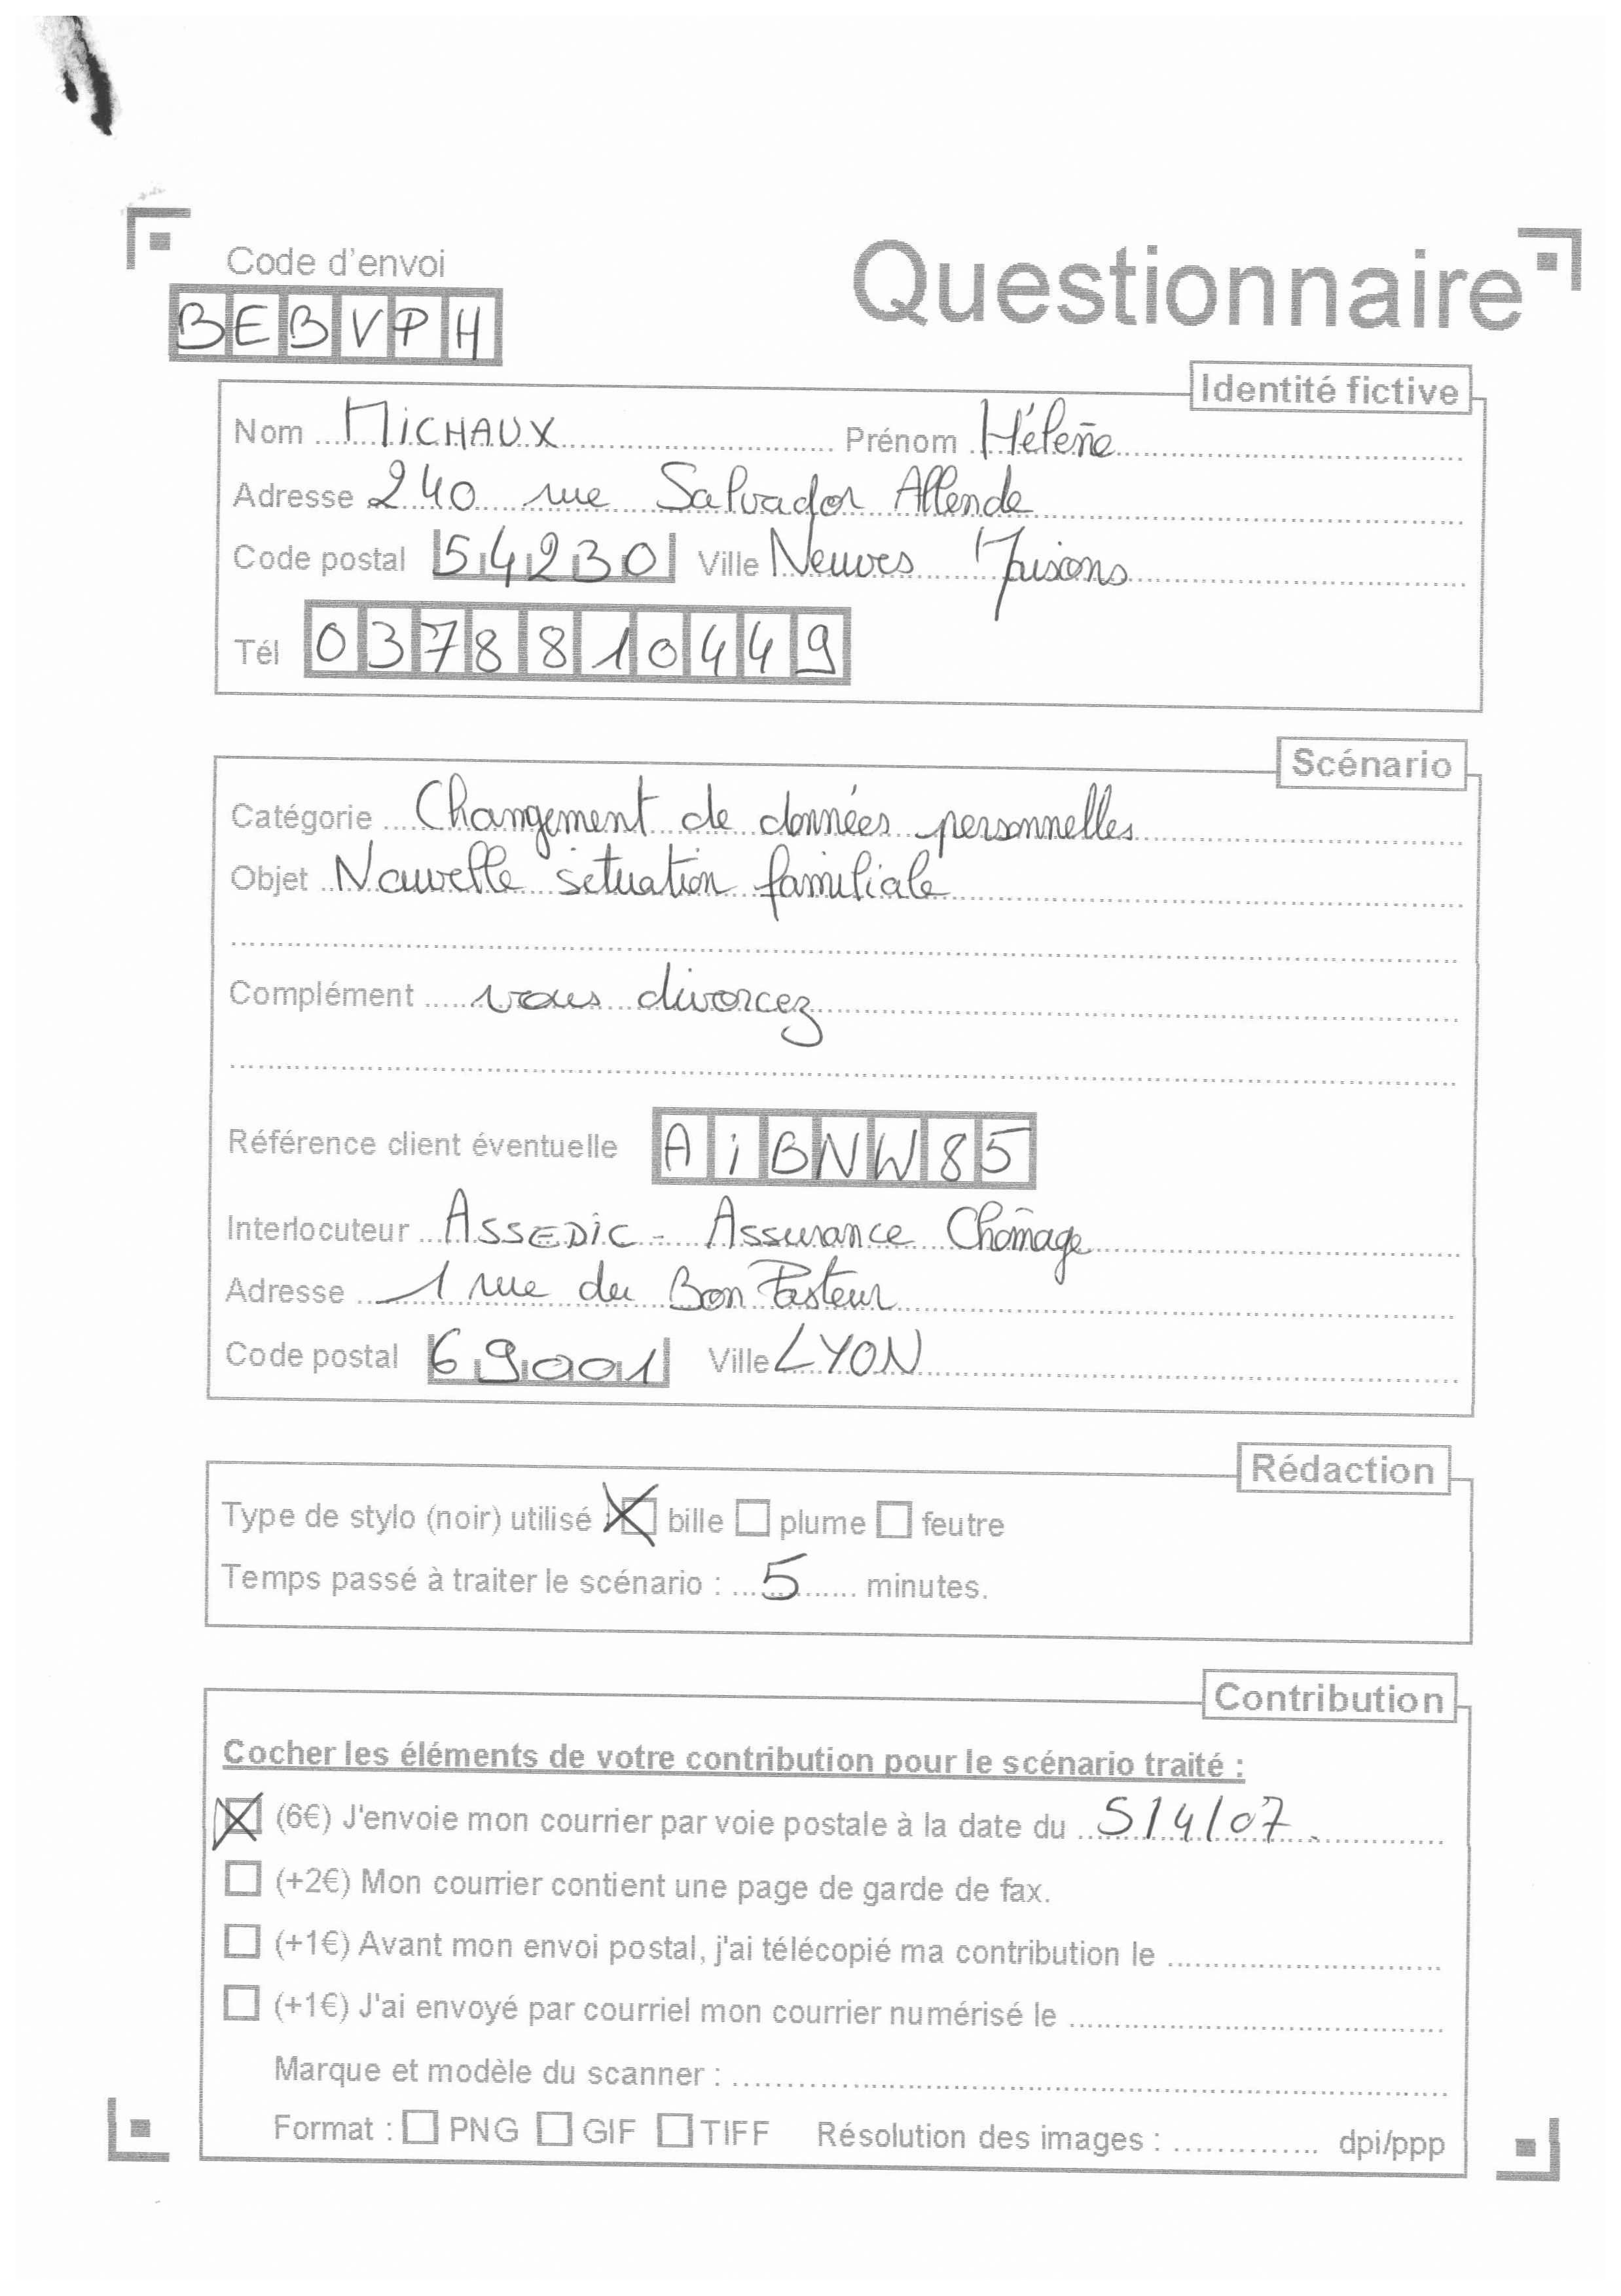 Code d'envoi
Questionnaire
BEBVPH
Identité fictive
Nom MiCHAUX Prénom Hélène
Adresse 240 rue Salvador Allende
Code postal 54230 Ville Neuves Maisons
Tél 0378810449
Scénario
Catégorie Changement de données personnelles
Objet Nouvelle situation familiale
Complément vous divorcez
Référence client éventuelle AiBNW85
Interlocuteur ASSEDiC - Assurance Chômage
Adresse 1 rue du Bon Pasteur
Code postal 69001 Ville LYON
Rédaction
Type de stylo (noir) utilisé : bille plume feutre
Temps passé à traiter le scénario : 5 minutes.
Contribution
Cocher les éléments de votre contribution pour le scénario traité :
(6€) J'envoie mon courrier par voie postale à la date du 5/4/07.
(+2€) Mon courrier contient une page de garde de fax.
(+1€) Avant mon envoi postal, j'ai télécopié ma contribution le
(+1€) J'ai envoyé par courriel mon courrier numérisé le
Marque et modèle du scanner :
Format : PNG GIF TIFF Résolution des images : dpi/ppp